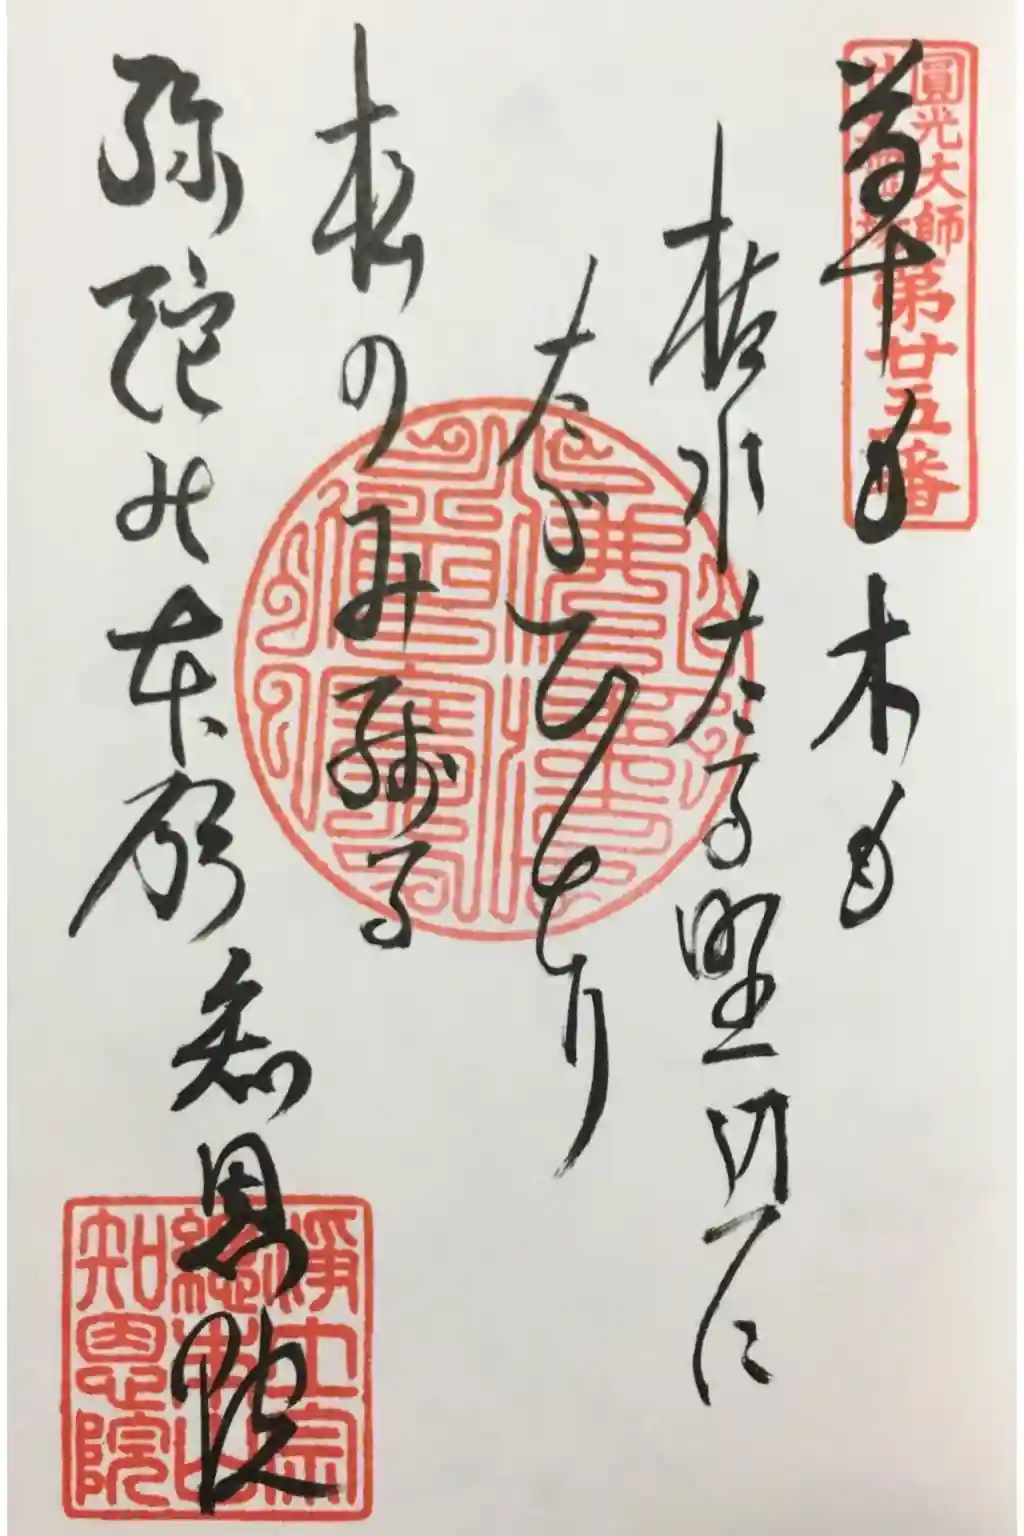 圓光大師
第廿五番
草も木も
枯れたる野辺に
たゞひとり
松のみ残る
弥陀の本願
知恩院
佛法僧寶
淨土宗
總本山
知恩院